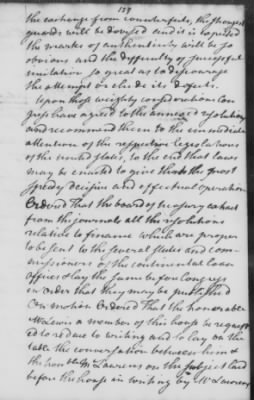 139
the exchange from counterfeits, the strongest
guards will be devised and it is expected
the marks of authenticity will be so
obvious and the difficulty of successful
imitation so great as to discourage
the attempt or elude its defects.
Upon those weighty considerations Con
gress have agreed to the annexed resolutions
and recommend them to the immediate
attention of the respective legislatures
of the united states, to the end that laws
may be enacted to give them the most
speedy decisive and effectual operation
Ordered That the board of treasury extract
from the journals all the resolutions
relative to finance which are proper
to be sent to the several states and com
missioners of the continental loan
offices & lay the same before Congress
in order that they may be published
On motion Ordered That the honorable
Mr Lewis a member of this house be request
ed to reduce to writing and to lay on the
table the conversation between him &
the honble Mr Laurens on the subject laid
before the house in writing by Mr Laurens